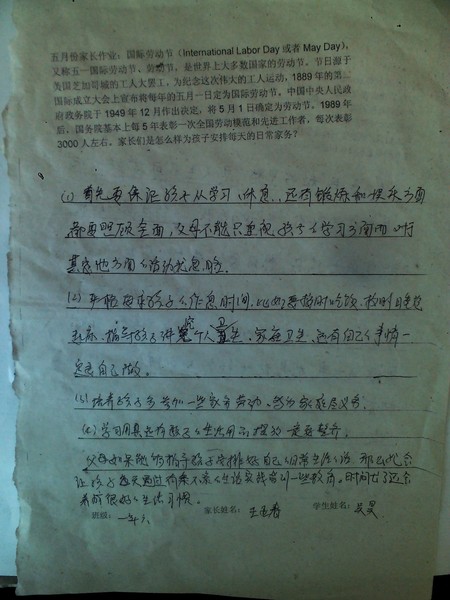 五月份家长作业：国际劳动节（International Labor Day 或者 May Day），
又称五一国际劳动节、劳动节，是世界上大多数国家的劳动节。节日源于
美国芝加哥城的工人大罢工，为纪念这次伟大的工人运动，1889年的第二
国际成立大会上宣布将每年的五月一日定为国际劳动节。中国中央人民政
府政务院于 1949 年 12 月作出决定，将 5 月 1 日确定为劳动节。1989年
后，国务院基本上每 5 年表彰一次全国劳动模范和先进工作者，每次表彰
3000 人左右。家长们是怎么样为孩子安排每天的日常家务？
(1) 首先要保证孩子从学习、休息、还有锻炼和娱乐方面
都要照顾全面，父母不能只重视孩子的学习方面而对
其它地方面的活动
(2) 严格要求孩子作息时间，比如要按时吃饭、按时睡觉
起床，指导孩子讲究个人卫生、家庭卫生，还有自己的事情一
定要自己做。
(3) 培养孩子多参加一些家务劳动，为家庭尽义务。
(4) 学习用具和孩子的生活用品摆放一定要整齐。
父母如果能够指导孩子安排好自己的日常生活，那么就会
让孩子每天通过生活实践得到一些教育，时间长了还会
养成很好的生活习惯。
班级： 家长姓名： 学生姓名：